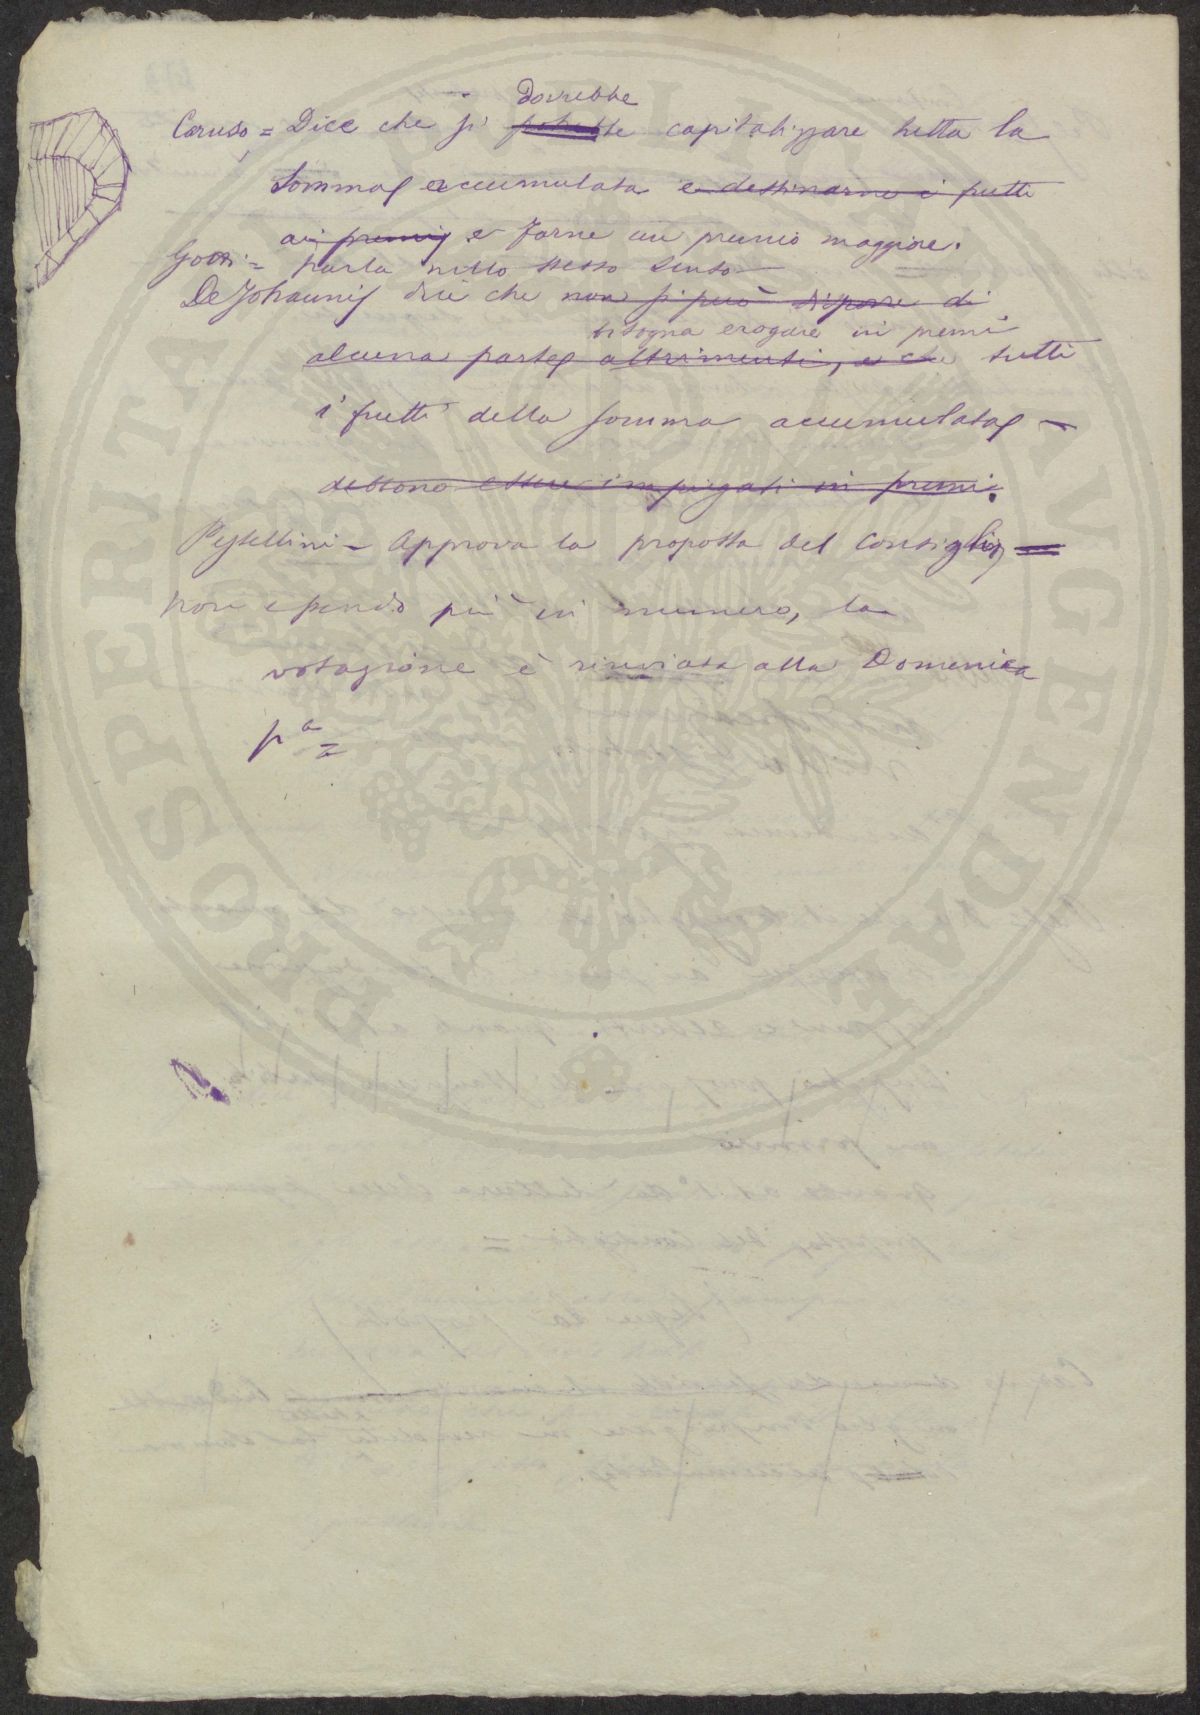 dovrebbe
Caruso = Dice che si potrebbe capitalizzare tutta la
somma accumulata e destinarne i frutti
ai premi, e farne un premio maggiore.
Gotti = parla nello stesso senso —
De Johannis dice che non si può disporre di
bisogna erogare in premi
alcuna parte altrimenti, e che tutti
i frutti della somma accumulata —
debbono essere impiegati in premi.
Pestellini – Approva la proposta del Consiglio =
Non essendo più in numero, la
votazione è rinviata alla Domenica
pa =
PROSPERITATI PUBLICAE AUGENDAE